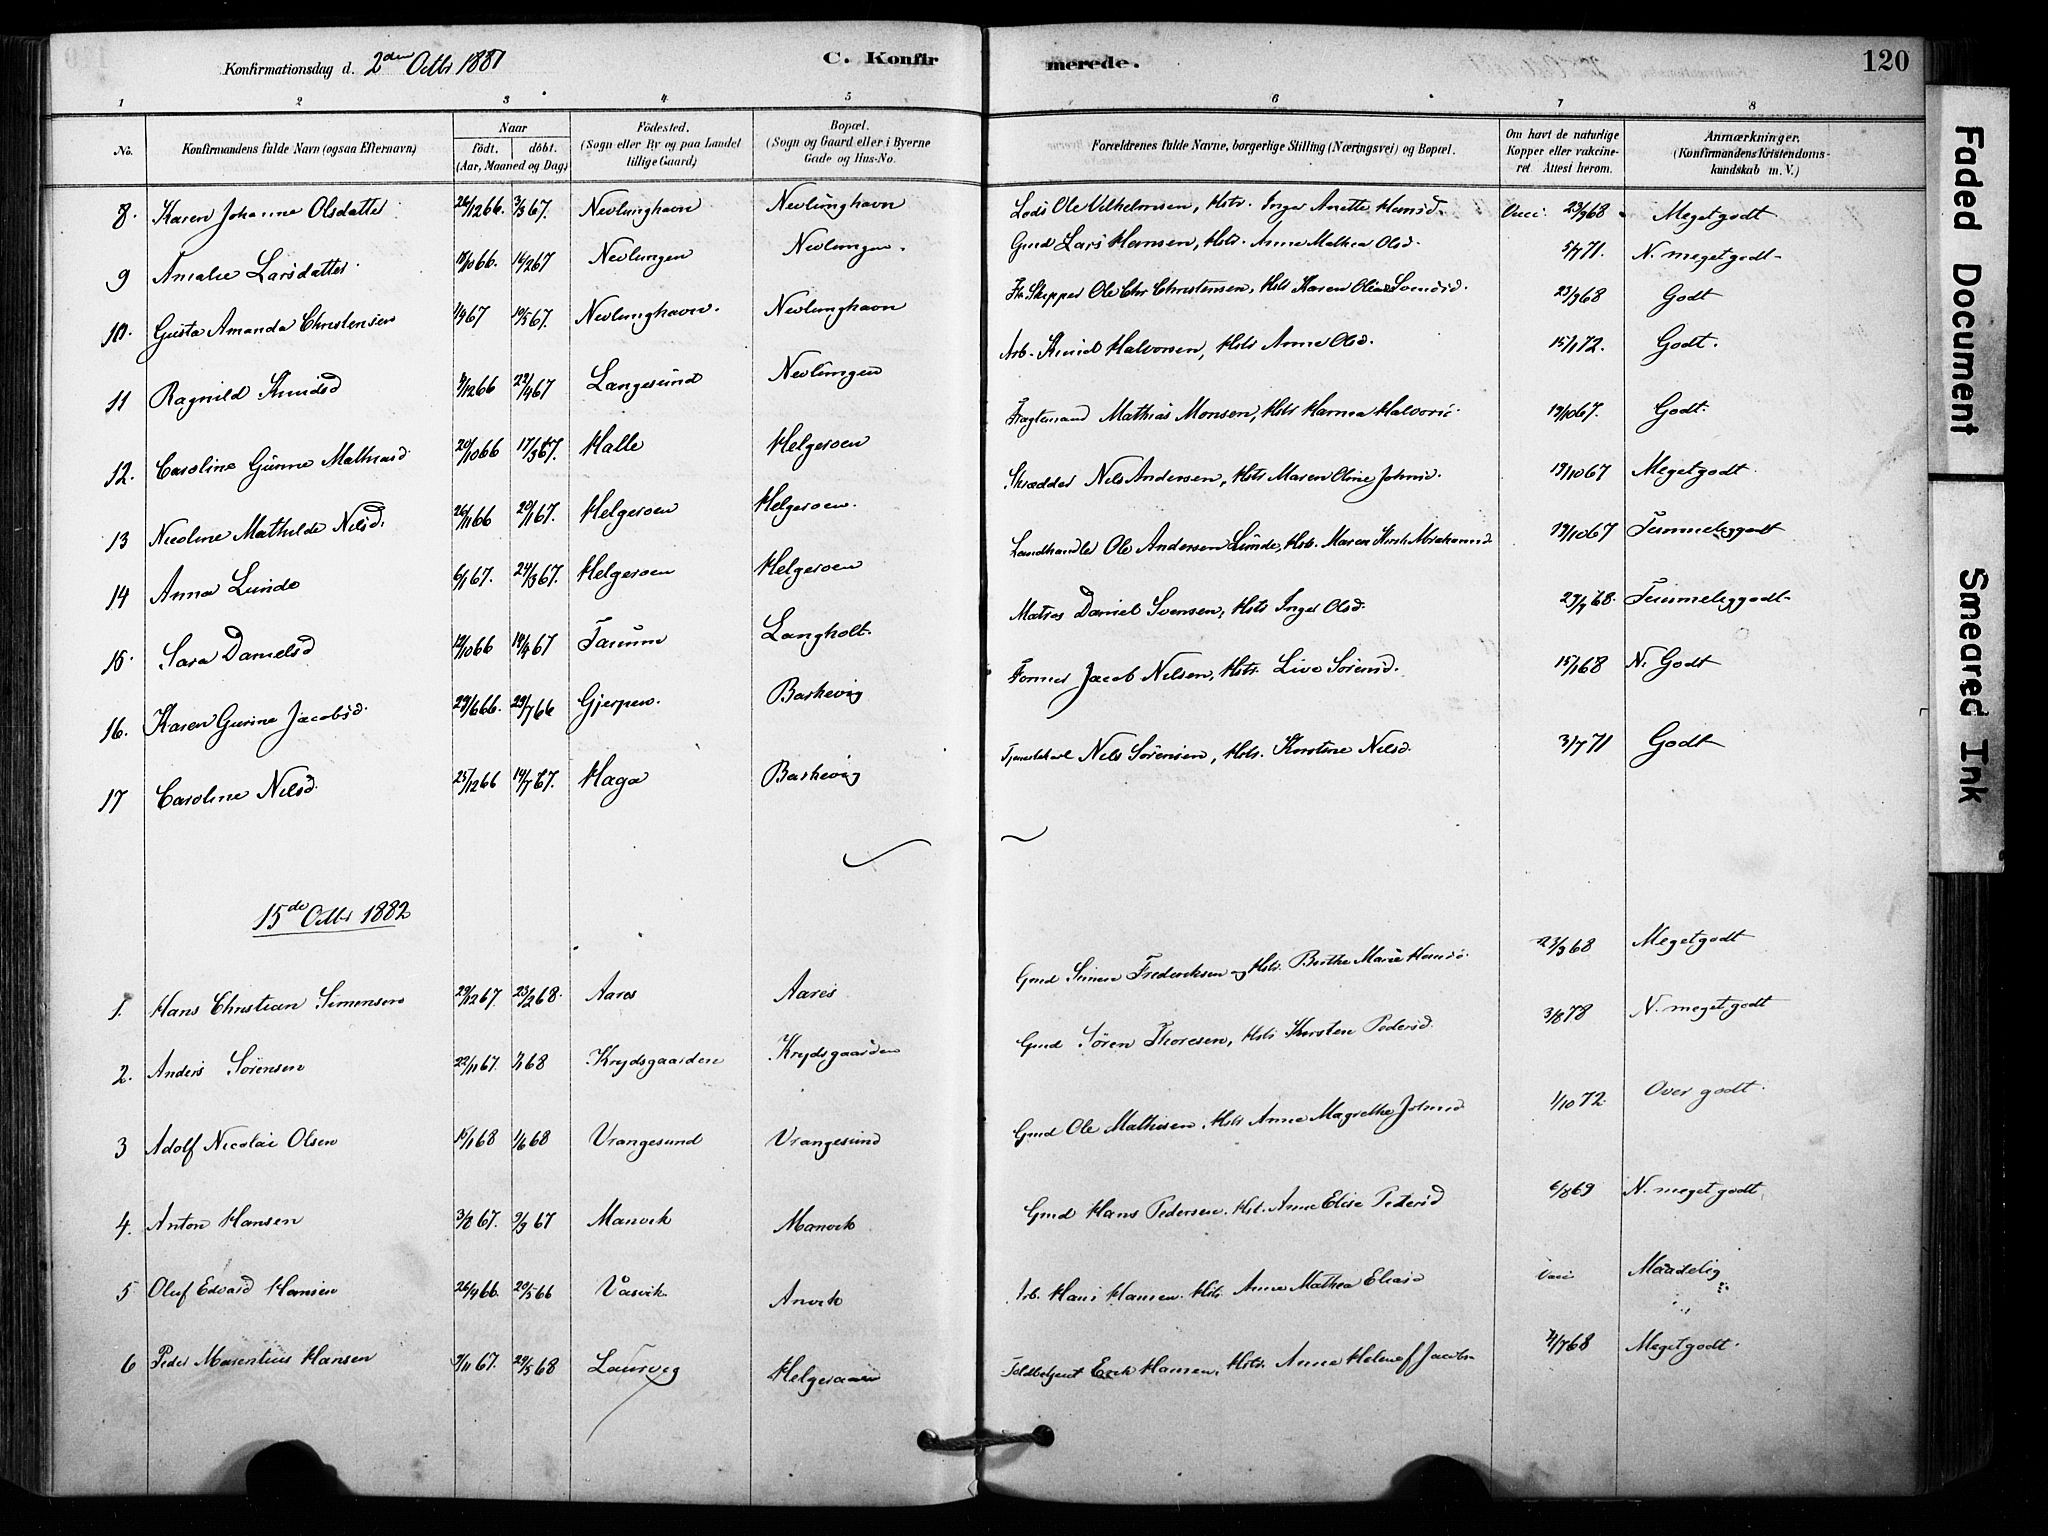 Konfirmationsdag d. 2den Octbr 1881
C. Konfirmerede.
120
1 2 3 4 5 6 7 8
No. Konfirmandens fulde Navn (ogsaa Efternavn) Naar født. døbt. (Aar, Maaned og Dag) Födested. (Sogn eller By og paa Landet tillige Gaard) Bopæl. (Sogn og Gaard eller i Byerne Gade og Hus-No. Forældrenes fulde Navne, borgerlige Stilling (Næringsvei) og Bopæl. Om havt de naturlige Kopper eller vakcineret Attest herom. Anmærkninger, (Konfirmandens Kristendomskundskab m. V.)
8. Karen Johanne Olsdatter 26/12 66. 3/3 67. Nevlunghavn Nevlunghavn Lods Ole Vilhelmsen, Hstr. Inger Anette Hansd. Vacc. 23/9 68 Meget godt
9 Amalie Larsdatter 18/10 66. 16/2 67 Nevlungen Nevlungen. Gmd Lars Hansen, Hstr. Anne Mathea Olsd. 5/7 71. N. meget godt
10. Gusta Amanda Christensen 1/3 67 19/5 67. Nevlunghavn. Nevlunghavn Fh. Skipper Ole Chr Christensen, Hstr Karen Oline Svendsd. 23/9 68 Godt
11 Ragnild Knudsd 9/12 66 22/4 67 Langesund Nevlungen Arb. Knud Halvorsen, Hstr Anne Olsd. 15/1 72. Godt.
12. Caroline Gurine Mathiasd 20/10 66 17/3 67. Halle Helgeroen Fragtemand Mathias Monsen, Hstr Hanna Halvorsd. 19/10 67. Godt.
13 Nicoline Mathilde Nilsd. 26/11 66 20/1 67. Helgeroen Helgeroen. Skrædder Nils Andersen, Hstr Maren Oline Johnsd. 19/10 67 Meget godt
14 Anna Lunde 6/1 67. 24/3 67. Helgeroen Helgeroen Landhandler Ole Andersen Lunde, Hstr. Maren Kirst. Abrahamsd 19/10 67 Temmelig godt
15. Sara Danielsd 12/10 66 19/4 67 Tanum Langholt. Matros Daniel Svensen, Hstr Inger Olsd. 29/9 68. Temmelig godt
16. Karen Gurine Jacobsd. 29/6 66. 29/7 66 Gjerpen. Barkevig Former Jacob Nilsen, Hstr. Live Sörensd. 15/1 68 N. Godt
17 Caroline Nilsd. 25/12 66 14/7 67. Haga Barkevig Tjenestekarl Nils Sørensen, Hstr. Kirstine Nilsd. 3/7 71 Godt
15de Octbr 1882
1. Hans Christian Simensen 29/12 67. 23/2 68. Aarøs Aarøs Gmd Simen Frederiksen og Hstr. Berthe Marie Hansd. 23/9 68 Meget godt
2. Anders Sørensen 22/11 67. 1/1 68 Krydsgaarden Krydsgaarden Gmd Sören Thoresen, Hstr Kirsten Pedersd. 3/8 78 N. meget godt
3 Adolf Nicolai Olsen 15/1 68 1/6 68 Vrangesund Vrangesund Gmd Ole Mathisen, Hstr Anne Magrethe Johnsd 1/10 72 Over godt.
4. Anton Hansen 3/8 67. 9/9 67 Manvik Manvik Gmd Hans Pedersen. Hst. Anne Elise Petersd 6/8 69 N. meget godt
5 Oluf Edvard Hansen 26/4 66. 20/5 66 Vasvik Anvik Arb. Hans Hansen. Hstr. Anne Mathea Eliasd Vacc Maadelig
6 Peder Marentius Hansen 9/11 67. 24/5 68 Laurvig Helgeraaen Toldbetjent Erik Hansen, Hstr. Anne Helene f. Jacobs 4/7 68 Meget godt.
Faded Document
Smeared Ink